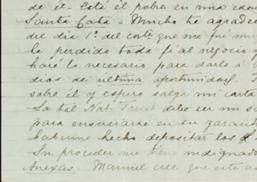 de él. Está el pobre en una edad
Santa Cata - Mucho te agradec
de dia 1º del corte que me fué mu
lo perdido toda fi al negocio y
hará lo necesario para darlo a
dias de última oportunidad. S
sobre él y espero salga mi carta
Lo tal Nat. debo en mi
para ensuciarse en su garant
haberme hecho depositar los
Su proceder me tiene indignado
Anexas. Manuel cree que está a